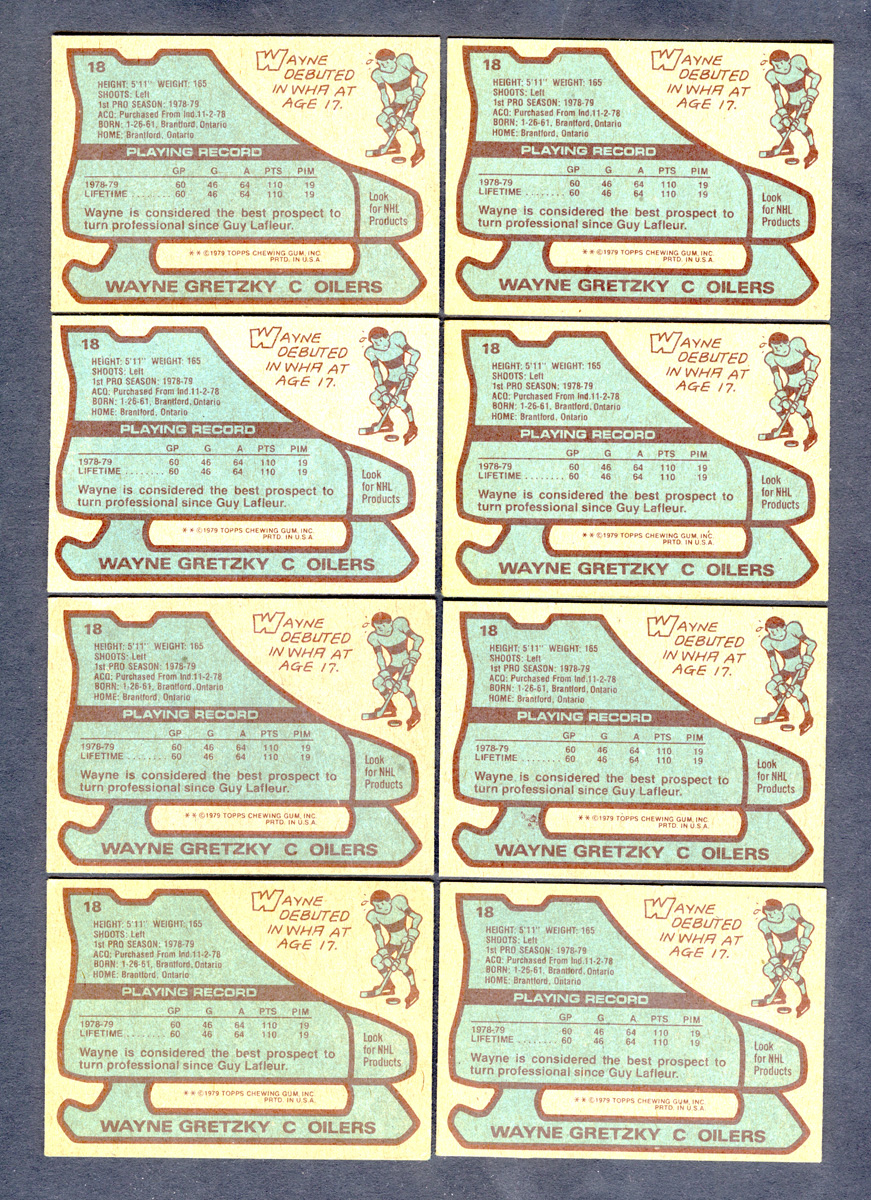 18
WAYNE
DEBUTED
IN WHA AT
AGE 17.
HEIGHT: 5'11" WEIGHT: 165
SHOOTS: Left
1st PRO SEASON: 1978-79
ACQ: Purchased From Ind.11-2-78
BORN: 1-26-61, Brantford, Ontario
HOME: Brantford, Ontario
PLAYING RECORD
GP G A PTS PIM
1978-79 60 46 64 110 19
LIFETIME ........ 60 46 64 110 19
Wayne is considered the best prospect to
turn professional since Guy Lafleur.
Look
for NHL
Products
** ©1979 TOPPS CHEWING GUM, INC.
PRTD. IN U.S.A.
WAYNE GRETZKY C OILERS
18
WAYNE
DEBUTED
IN WHA AT
AGE 17.
HEIGHT: 5'11" WEIGHT: 165
SHOOTS: Left
1st PRO SEASON: 1978-79
ACQ: Purchased From Ind.11-2-78
BORN: 1-26-61, Brantford, Ontario
HOME: Brantford, Ontario
PLAYING RECORD
GP G A PTS PIM
1978-79 60 46 64 110 19
LIFETIME ........ 60 46 64 110 19
Wayne is considered the best prospect to
turn professional since Guy Lafleur.
Look
for NHL
Products
** ©1979 TOPPS CHEWING GUM, INC.
PRTD. IN U.S.A.
WAYNE GRETZKY C OILERS
18
WAYNE
DEBUTED
IN WHA AT
AGE 17.
HEIGHT: 5'11" WEIGHT: 165
SHOOTS: Left
1st PRO SEASON: 1978-79
ACQ: Purchased From Ind.11-2-78
BORN: 1-26-61, Brantford, Ontario
HOME: Brantford, Ontario
PLAYING RECORD
GP G A PTS PIM
1978-79 60 46 64 110 19
LIFETIME ........ 60 46 64 110 19
Wayne is considered the best prospect to
turn professional since Guy Lafleur.
Look
for NHL
Products
** ©1979 TOPPS CHEWING GUM, INC.
PRTD. IN U.S.A.
WAYNE GRETZKY C OILERS
18
WAYNE
DEBUTED
IN WHA AT
AGE 17.
HEIGHT: 5'11" WEIGHT: 165
SHOOTS: Left
1st PRO SEASON: 1978-79
ACQ: Purchased From Ind.11-2-78
BORN: 1-26-61, Brantford, Ontario
HOME: Brantford, Ontario
PLAYING RECORD
GP G A PTS PIM
1978-79 60 46 64 110 19
LIFETIME ........ 60 46 64 110 19
Wayne is considered the best prospect to
turn professional since Guy Lafleur.
Look
for NHL
Products
** ©1979 TOPPS CHEWING GUM, INC.
PRTD. IN U.S.A.
WAYNE GRETZKY C OILERS
18
WAYNE
DEBUTED
IN WHA AT
AGE 17.
HEIGHT: 5'11" WEIGHT: 165
SHOOTS: Left
1st PRO SEASON: 1978-79
ACQ: Purchased From Ind.11-2-78
BORN: 1-26-61, Brantford, Ontario
HOME: Brantford, Ontario
PLAYING RECORD
GP G A PTS PIM
1978-79 60 46 64 110 19
LIFETIME ........ 60 46 64 110 19
Wayne is considered the best prospect to
turn professional since Guy Lafleur.
Look
for NHL
Products
** ©1979 TOPPS CHEWING GUM, INC.
PRTD. IN U.S.A.
WAYNE GRETZKY C OILERS
18
WAYNE
DEBUTED
IN WHA AT
AGE 17.
HEIGHT: 5'11" WEIGHT: 165
SHOOTS: Left
1st PRO SEASON: 1978-79
ACQ: Purchased From Ind.11-2-78
BORN: 1-26-61, Brantford, Ontario
HOME: Brantford, Ontario
PLAYING RECORD
GP G A PTS PIM
1978-79 60 46 64 110 19
LIFETIME ........ 60 46 64 110 19
Wayne is considered the best prospect to
turn professional since Guy Lafleur.
Look
for NHL
Products
** ©1979 TOPPS CHEWING GUM, INC.
PRTD. IN U.S.A.
WAYNE GRETZKY C OILERS
18
WAYNE
DEBUTED
IN WHA AT
AGE 17.
HEIGHT: 5'11" WEIGHT: 165
SHOOTS: Left
1st PRO SEASON: 1978-79
ACQ: Purchased From Ind.11-2-78
BORN: 1-26-61, Brantford, Ontario
HOME: Brantford, Ontario
PLAYING RECORD
GP G A PTS PIM
1978-79 60 46 64 110 19
LIFETIME ........ 60 46 64 110 19
Wayne is considered the best prospect to
turn professional since Guy Lafleur.
Look
for NHL
Products
** ©1979 TOPPS CHEWING GUM, INC.
PRTD. IN U.S.A.
WAYNE GRETZKY C OILERS
18
WAYNE
DEBUTED
IN WHA AT
AGE 17.
HEIGHT: 5'11" WEIGHT: 165
SHOOTS: Left
1st PRO SEASON: 1978-79
ACQ: Purchased From Ind.11-2-78
BORN: 1-26-61, Brantford, Ontario
HOME: Brantford, Ontario
PLAYING RECORD
GP G A PTS PIM
1978-79 60 46 64 110 19
LIFETIME ........ 60 46 64 110 19
Wayne is considered the best prospect to
turn professional since Guy Lafleur.
Look
for NHL
Products
** ©1979 TOPPS CHEWING GUM, INC.
PRTD. IN U.S.A.
WAYNE GRETZKY C OILERS